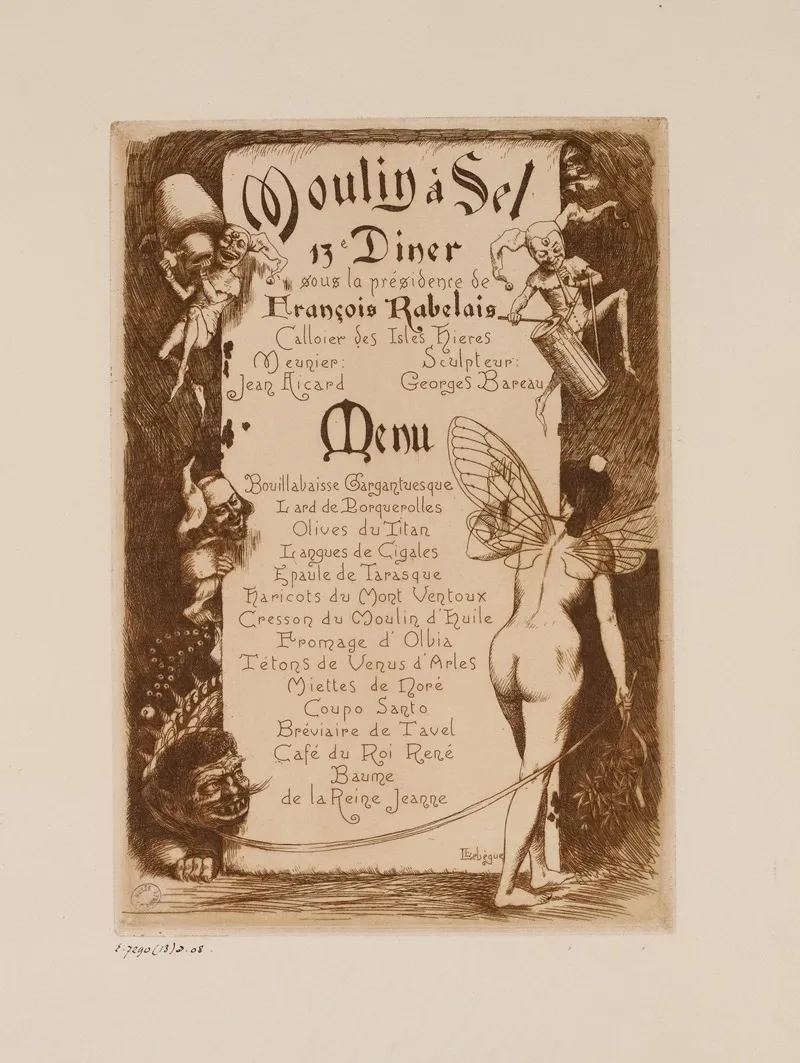 Moulin à Sel
13e Diner
sous la présidence de
François Rabelais
Calloier des Isles Hieres
Meunier: Sculpteur:
Jean Aicard Georges Bareau
Menu
Bouillabaisse Gargantuesque
Lard de Porquerolles
Olives du Titan
Langues de Cigales
Epaule de Tarasque
Haricots du Mont Ventoux
Cresson du Moulin d'Huile
Fromage d'Olbia
Tétons de Venus d'Arles
Miettes de Noré
Coupo Santo
Bréviaire de Tavel
Café du Roi René
Baume
de la Reine Jeanne
Lebègue
E.7290(13)